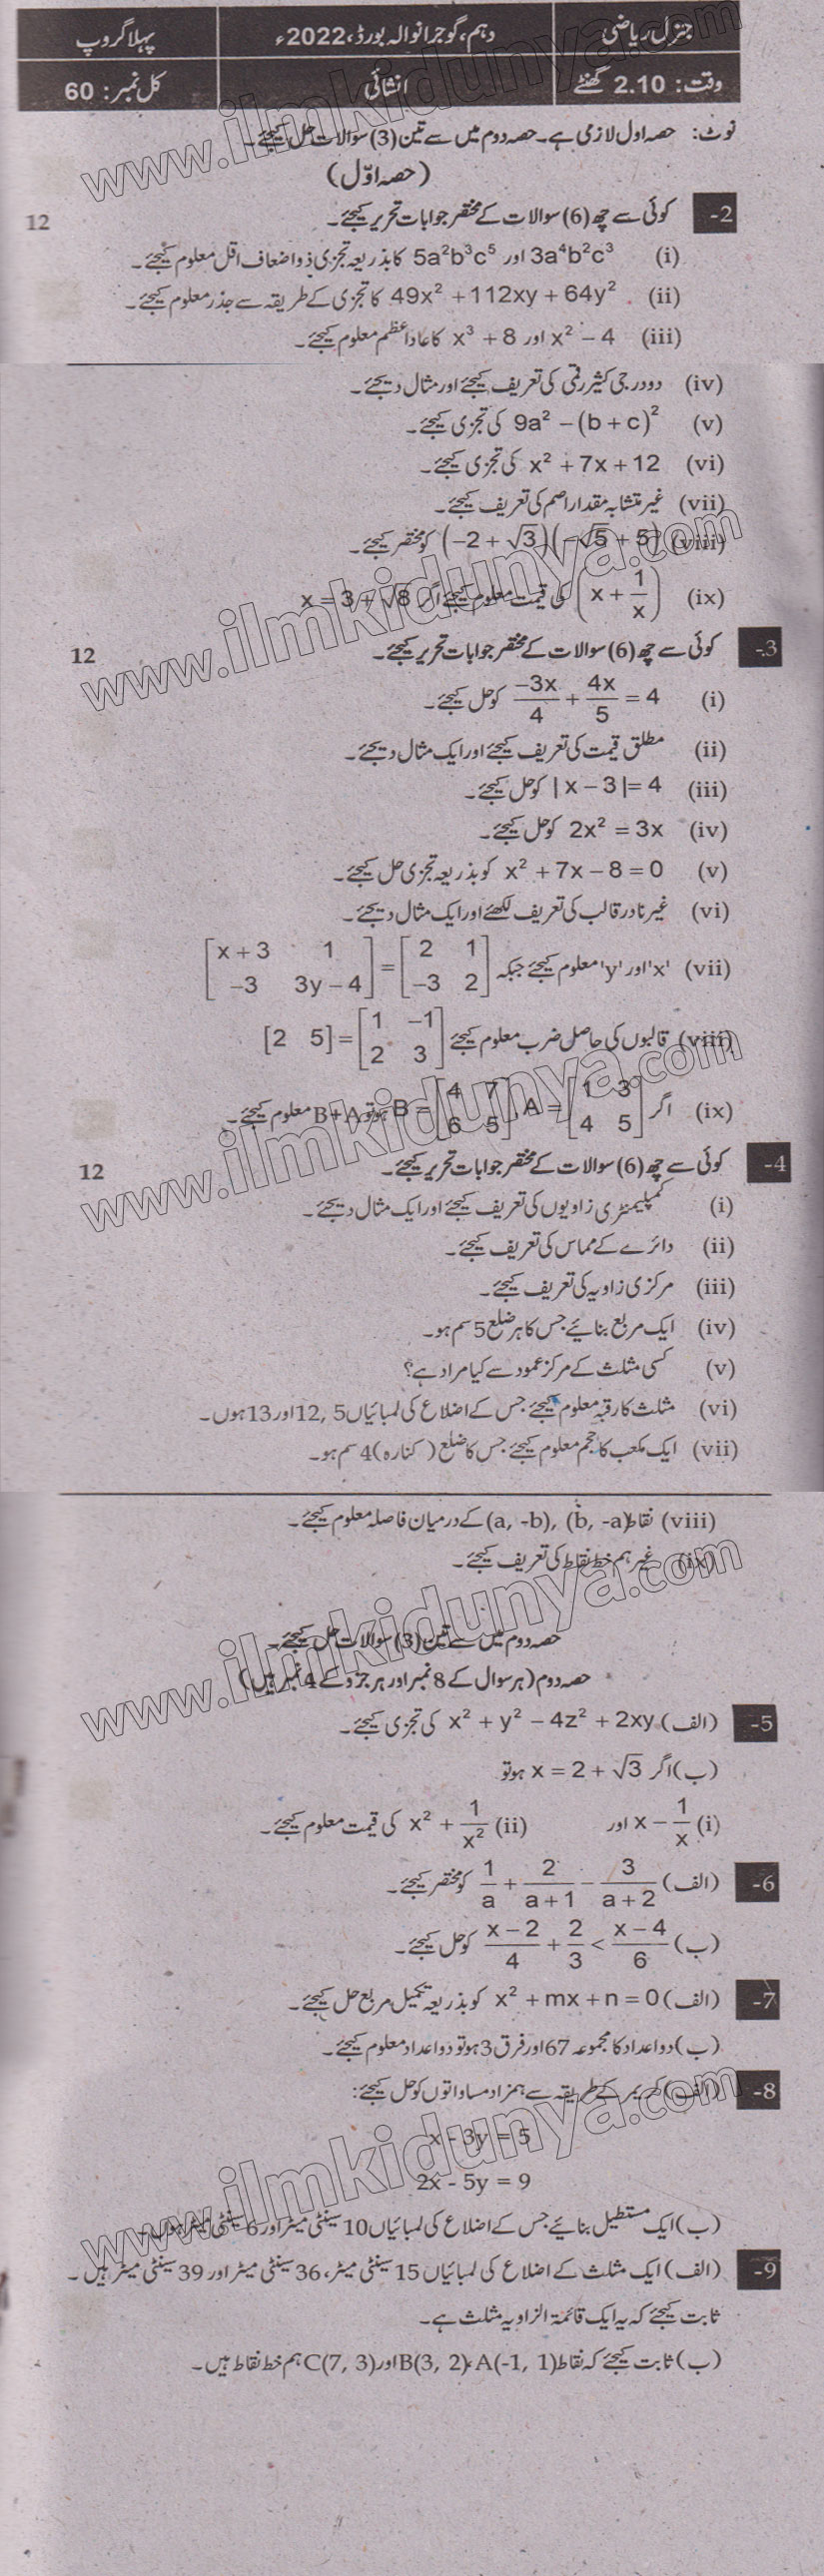 جنرل ریاضی دہم، گوجرانوالہ بورڈ، 2022ء پہلا گروپ
وقت: 2.10 گھنٹے انشائی کل نمبر: 60
نوٹ: حصہ اول لازمی ہے۔ حصہ دوم میں سے تین (3) سوالات حل کیجئے۔
(حصہ اوّل)
2- کوئی سے چھ (6) سوالات کے مختصر جوابات تحریر کیجئے۔ 12
(i) 3a⁴b²c³ اور 5a²b³c⁵ کا بذریعہ تجزی ذواضعاف اقل معلوم کیجئے۔
(ii) 49x² + 112xy + 64y² کا تجزی کے طریقہ سے جذر معلوم کیجئے۔
(iii) x² – 4 اور x³ + 8 کا عاداعظم معلوم کیجئے۔
(iv) دو درجی کثیر رقمی کی تعریف کیجئے اور مثال دیجئے۔
(v) 9a² – (b + c)² کی تجزی کیجئے۔
(vi) x² + 7x + 12 کی تجزی کیجئے۔
(vii) غیر متشابہ مقدار اصم کی تعریف کیجئے۔
(viii) (–2 + √3)(–√5 + 5) کو مختصر کیجئے۔
(ix) (x + 1/x) کی قیمت معلوم کیجئے اگر x = 3 + √8
3- کوئی سے چھ (6) سوالات کے مختصر جوابات تحریر کیجئے۔ 12
(i) –3x/4 + 4x/5 = 4 کو حل کیجئے۔
(ii) مطلق قیمت کی تعریف کیجئے اور ایک مثال دیجئے۔
(iii) |x – 3| = 4 کو حل کیجئے۔
(iv) 2x² = 3x کو حل کیجئے۔
(v) x² + 7x – 8 = 0 کو بذریعہ تجزی حل کیجئے۔
(vi) غیر نادر قالب کی تعریف لکھئے اور ایک مثال دیجئے۔
(vii) 'x' اور 'y' معلوم کیجئے جبکہ [x + 3 1; –3 3y – 4] = [2 1; –3 2]
(viii) قالبوں کی حاصل ضرب معلوم کیجئے [2 5] = [1 –1; 2 3]
(ix) اگر A = [1 3; 4 5], B = [4 7; 6 5] ہو تو B+A معلوم کیجئے۔
4- کوئی سے چھ (6) سوالات کے مختصر جوابات تحریر کیجئے۔ 12
(i) کمپلیمنٹری زاویوں کی تعریف کیجئے اور ایک مثال دیجئے۔
(ii) دائرے کے مماس کی تعریف کیجئے۔
(iii) مرکزی زاویہ کی تعریف کیجئے۔
(iv) ایک مربع بنائیے جس کا ہر ضلع 5 سم ہو۔
(v) کسی مثلث کے مرکز عمود سے کیا مراد ہے؟
(vi) مثلث کا رقبہ معلوم کیجئے جس کے اضلاع کی لمبائیاں 5 ,12 اور 13 ہوں۔
(vii) ایک مکعب کا حجم معلوم کیجئے جس کا ضلع (کنارہ) 4 سم ہو۔
(viii) نقاط (a, -b), (b, -a) کے درمیان فاصلہ معلوم کیجئے۔
(ix) غیر ہم خط نقاط کی تعریف کیجئے۔
حصہ دوم میں سے تین (3) سوالات حل کیجئے۔
حصہ دوم (ہر سوال کے 8 نمبر اور ہر جزو کے 4 نمبر ہیں)
5- (الف) x² + y² – 4z² + 2xy کی تجزی کیجئے۔
(ب) اگر x = 2 + √3 ہو تو
(i) x – 1/x اور (ii) x² + 1/x² کی قیمت معلوم کیجئے۔
6- (الف) 1/a + 2/(a + 1) – 3/(a + 2) کو مختصر کیجئے۔
(ب) (x – 2)/4 + 2/3 < (x – 4)/6 کو حل کیجئے۔
7- (الف) x² + mx + n = 0 کو بذریعہ تکمیل مربع حل کیجئے۔
(ب) دو اعداد کا مجموعہ 67 اور فرق 3 ہو تو دو اعداد معلوم کیجئے۔
8- (الف) کریمر کے طریقہ سے ہمزاد مساواتوں کو حل کیجئے:
x - 3y = 5
2x - 5y = 9
(ب) ایک مستطیل بنائیے جس کے اضلاع کی لمبائیاں 10 سینٹی میٹر اور 6 سینٹی میٹر ہوں۔
9- (الف) ایک مثلث کے اضلاع کی لمبائیاں 15 سینٹی میٹر، 36 سینٹی میٹر اور 39 سینٹی میٹر ہیں۔
ثابت کیجئے کہ یہ ایک قائمۃ الزاویہ مثلث ہے۔
(ب) ثابت کیجئے کہ نقاط A(-1, 1)، B(3, 2) اور C(7, 3) ہم خط نقاط ہیں۔
www.ilmkidunya.com
www.ilmkidunya.com
www.ilmkidunya.com
www.ilmkidunya.com
www.ilmkidunya.com